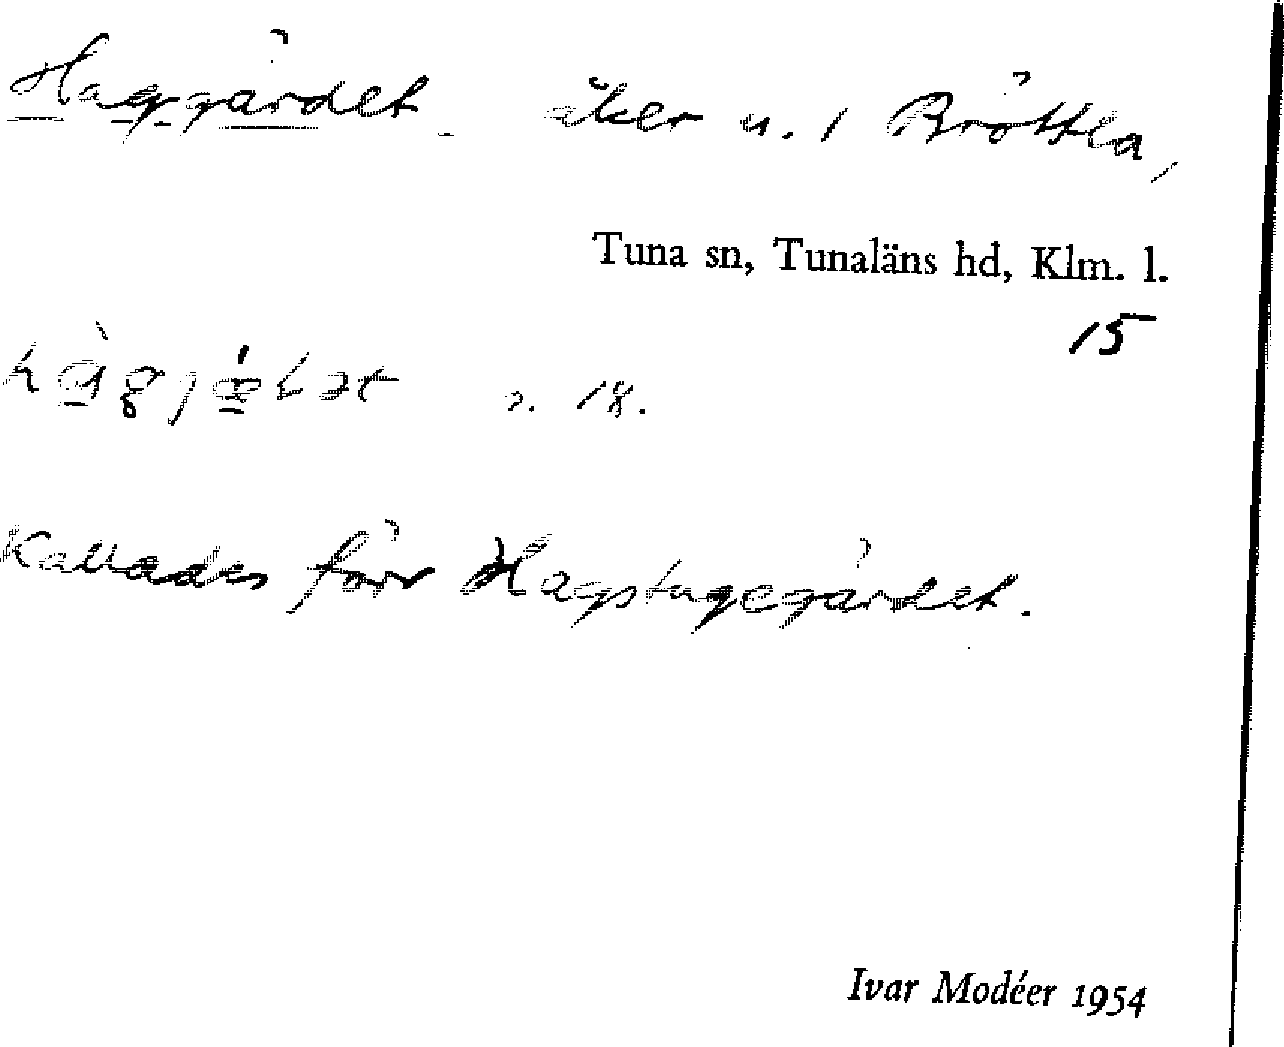 Haggärdet. åker u. 1 Bröttla,
Tuna sn, Tunaläns hd, Klm. l.
15
s. 18.
Kallades förr Hagstugegärdet.
Ivar Modéer 1954